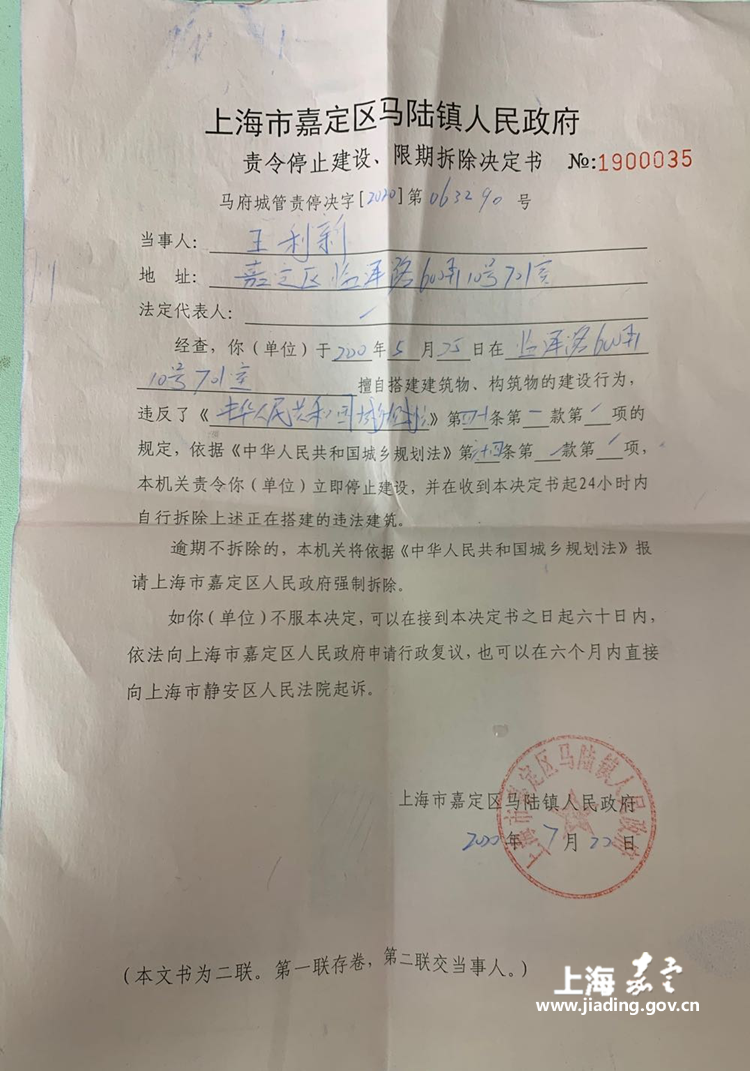 上海市嘉定区马陆镇人民政府
责令停止建设、限期拆除决定书 №:1900035
马府城管责停决字[2020]第063290号
当事人：王利新
地 址：嘉定区 路600弄10号701室
法定代表人：/
经查，你（单位）于2020年5月25日在 路600弄
10号701室 擅自搭建建筑物、构筑物的建设行为，
违反了《中华人民共和国城乡规划法》第四十条第一款第/项的
规定，依据《中华人民共和国城乡规划法》第六十四条第 款第/项，
本机关责令你（单位）立即停止建设，并在收到本决定书起24小时内
自行拆除上述正在搭建的违法建筑。
逾期不拆除的，本机关将依据《中华人民共和国城乡规划法》报
请上海市嘉定区人民政府强制拆除。
如你（单位）不服本决定，可以在接到本决定书之日起六十日内，
依法向上海市嘉定区人民政府申请行政复议，也可以在六个月内直接
向上海市静安区人民法院起诉。
上海市嘉定区马陆镇人民政府
2020年7月22日
上海市嘉定区马陆镇人民政府
（本文书为二联。第一联存卷，第二联交当事人。）
上海嘉定
www.jiading.gov.cn